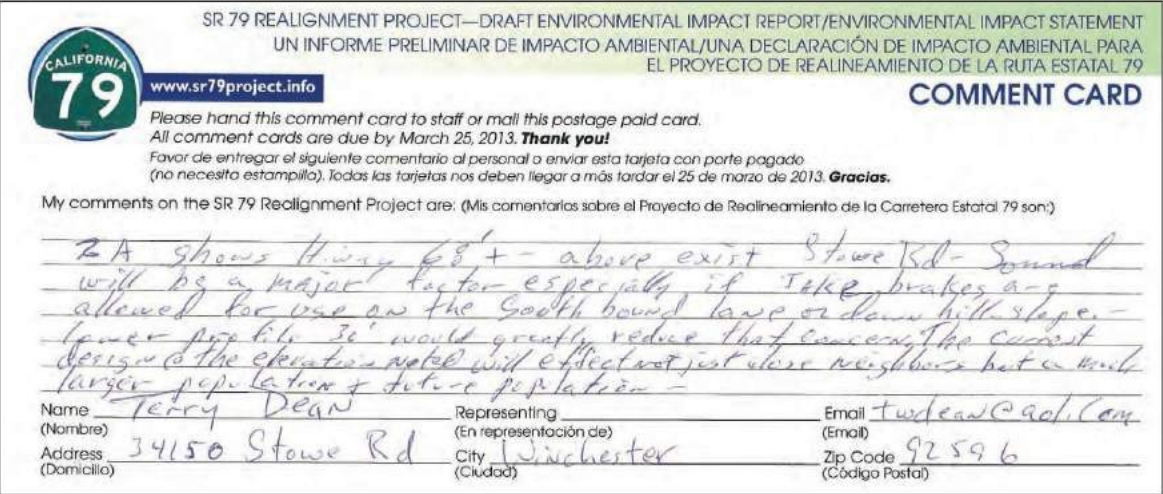 SR 79 REALIGNMENT PROJECT—DRAFT ENVIRONMENTAL IMPACT REPORT/ENVIRONMENTAL IMPACT STATEMENT
UN INFORME PRELIMINAR DE IMPACTO AMBIENTAL/UNA DECLARACIÓN DE IMPACTO AMBIENTAL PARA
EL PROYECTO DE REALINEAMIENTO DE LA RUTA ESTATAL 79
CALIFORNIA
79
www.sr79project.info
COMMENT CARD
Please hand this comment card to staff or mail this postage paid card.
All comment cards are due by March 25, 2013. Thank you!
Favor de entregar el siguiente comentario al personal o enviar esta tarjeta con porte pagado
(no necesita estampilla). Todas las tarjetas nos deben llegar a más tardar el 25 de marzo de 2013. Gracias.
My comments on the SR 79 Realignment Project are: (Mis comentarios sobre el Proyecto de Realineamiento de la Carretera Estatal 79 son:)
2A shows Hiway 68'+- above exist Stowe Rd- Sound
will be a major factor especially if JAKE brakes are
allowed for use on the South bound lane or down hill slope.-
lower profile 30' would greatly reduce that concern. The current
design @ the elevation noted will effect not just close neighbors but a much
larger population & future population -
Name Terry Dean Representing Email twdean@aol.com
(Nombre) (En representación de) (Email)
Address 34150 Stowe Rd City Winchester Zip Code 92596
(Domicilio) (Ciudad) (Código Postal)